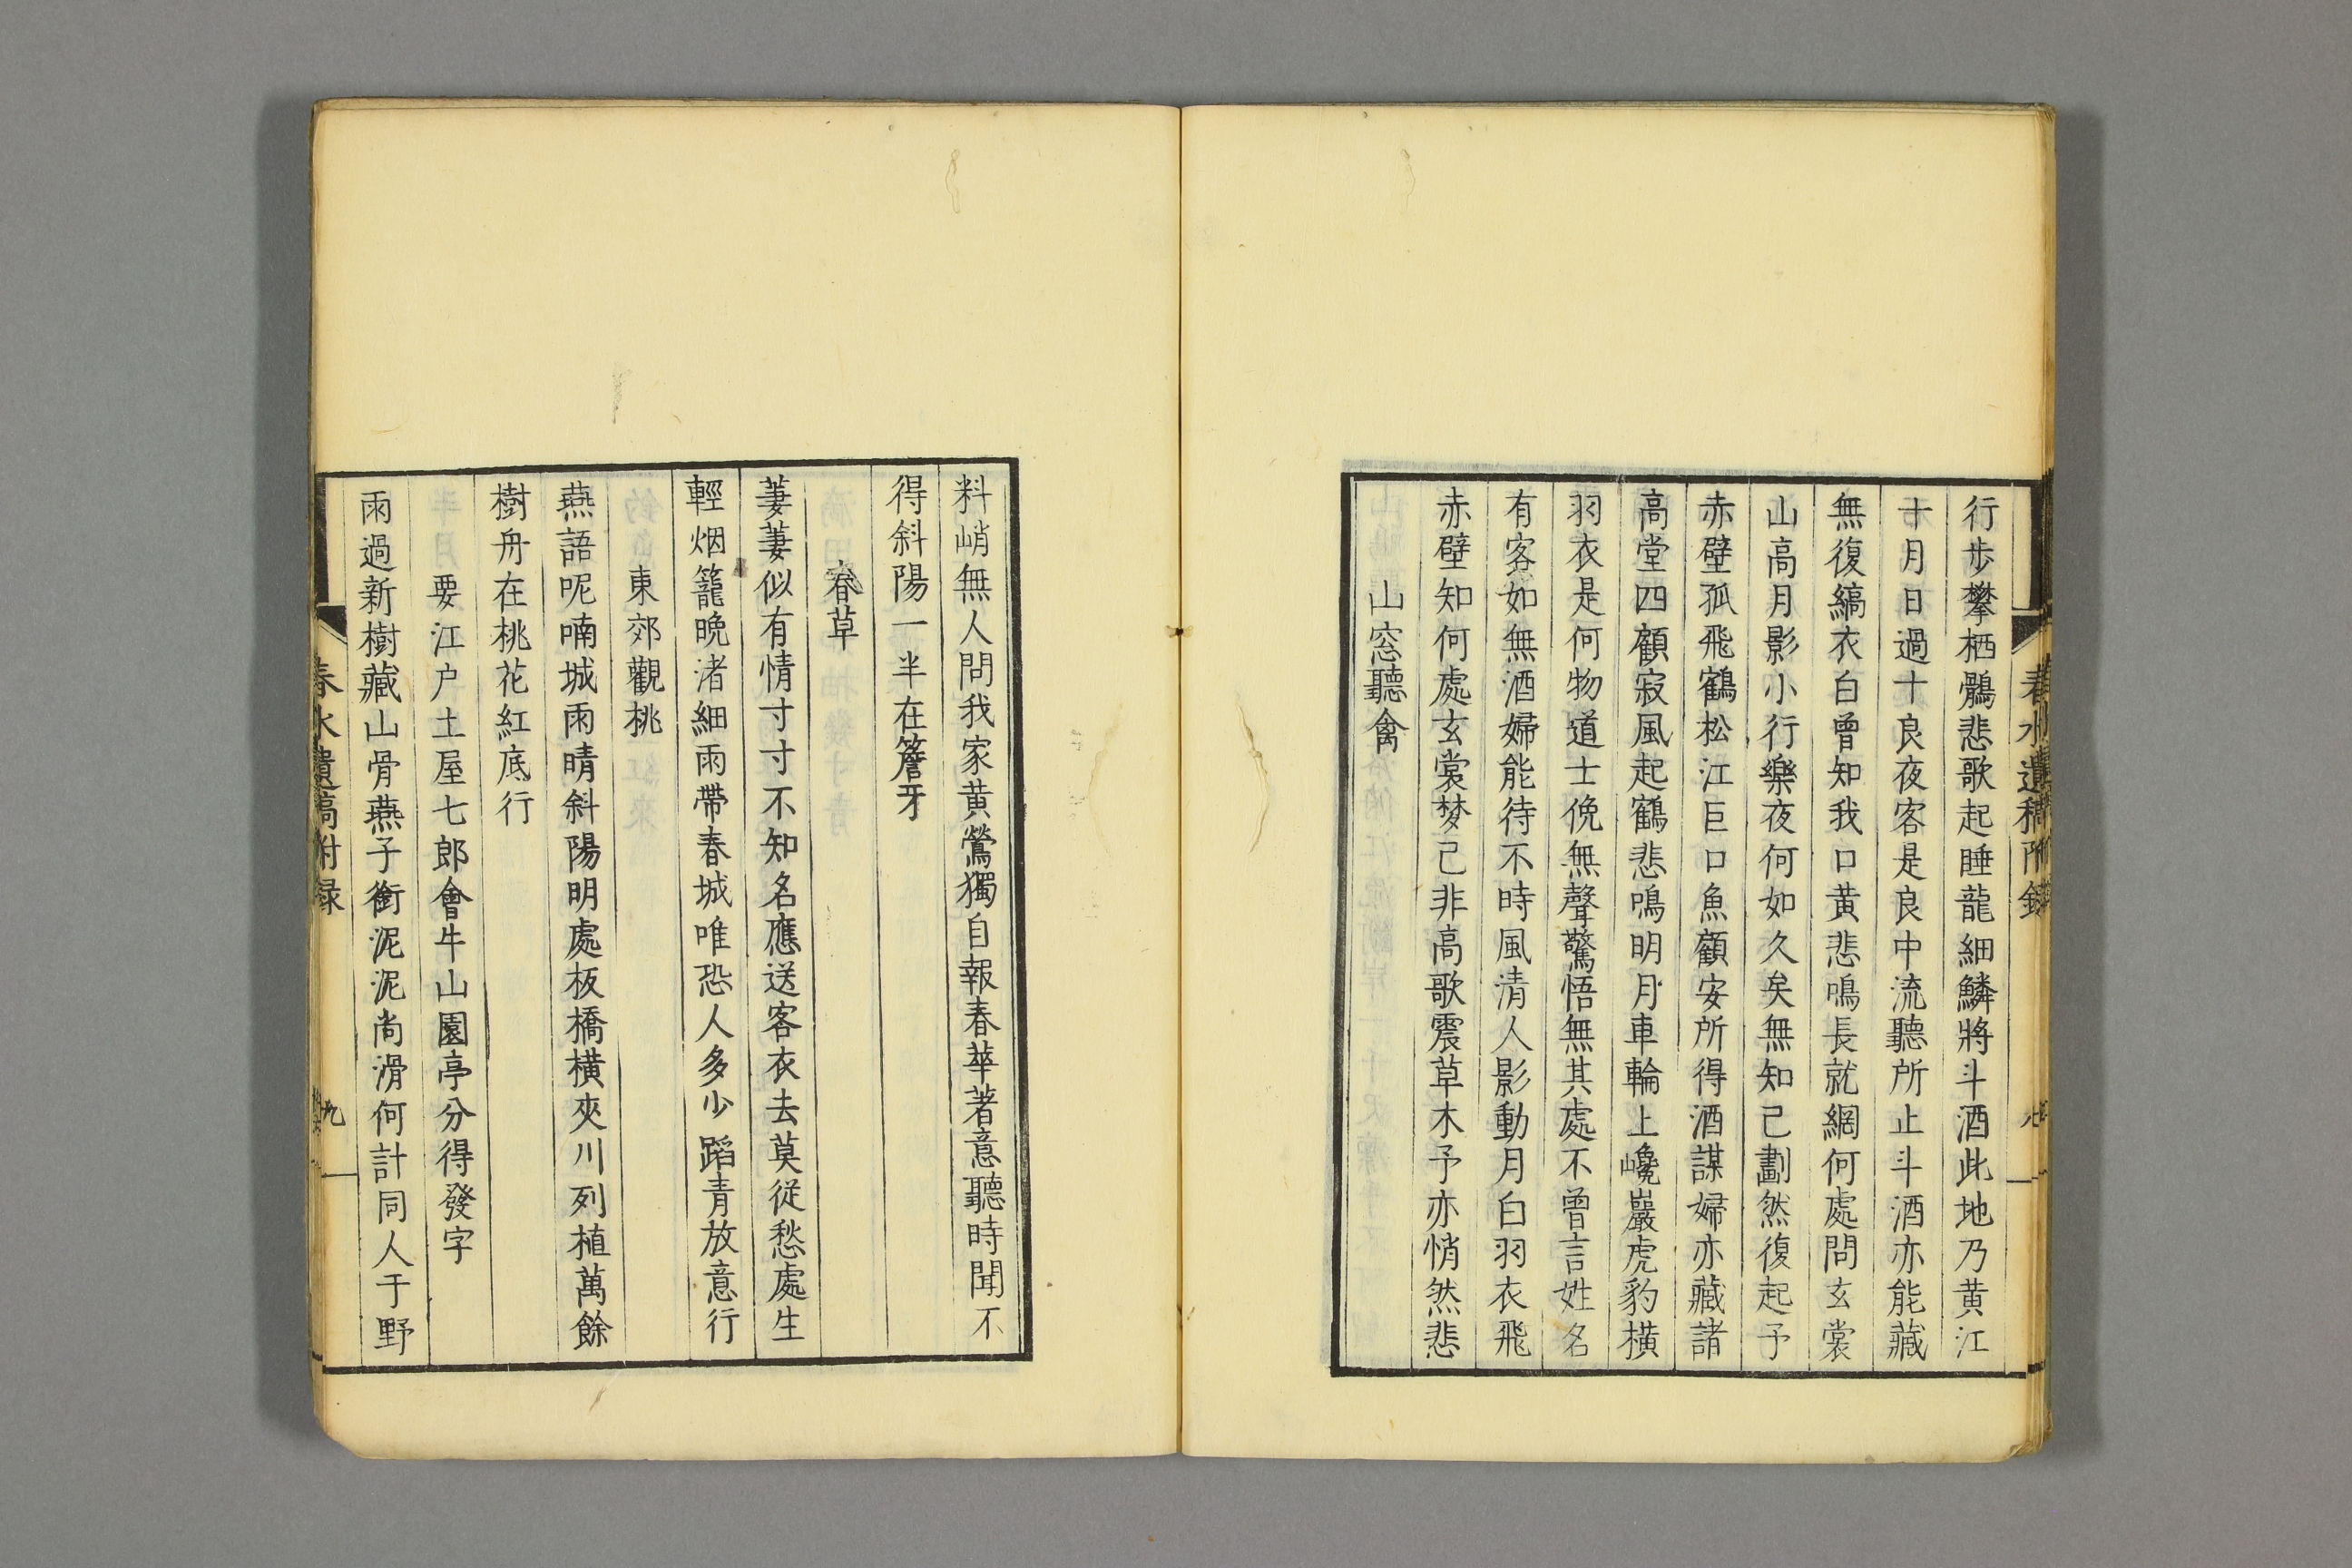 行歩攀栖鶻悲歌起睡龍細鱗將斗酒此地乃黄江
十月日過十良夜客是良中流聽所止斗酒亦能藏
無復縞衣白曾知我口黄悲鳴長就網何處問玄裳
山高月影小行樂夜何如久矣無知己劃然復起予
赤壁孤飛鶴松江巨口魚顧安所得酒謀婦亦藏諸
高堂四顧寂風起鶴悲鳴明月車輪上巉巖虎豹横
羽衣是何物道士俛無聲驚悟無其處不曾言姓名
有客如無酒婦能待不時風清人影動月白羽衣飛
赤壁知何處玄裳梦己非高歌震草木予亦悄然悲
山窓聽禽
春水遺稿附録
料峭無人問我家黄鶯獨自報春華著意聽時聞不
得斜陽一半在簷牙
春草
萋萋似有情寸寸不知名應送客衣去莫従愁處生
輕烟籠晩渚細雨帶春城唯恐人多少蹈青放意行
東郊觀桃
燕語呢喃城雨晴斜陽明處板橋横夾川列植萬餘
樹舟在桃花紅底行
要江户土屋七郎會牛山園亭分得發字
雨過新樹藏山骨燕子銜泥泥尚滑何計同人于野
春水遺稿附録
九